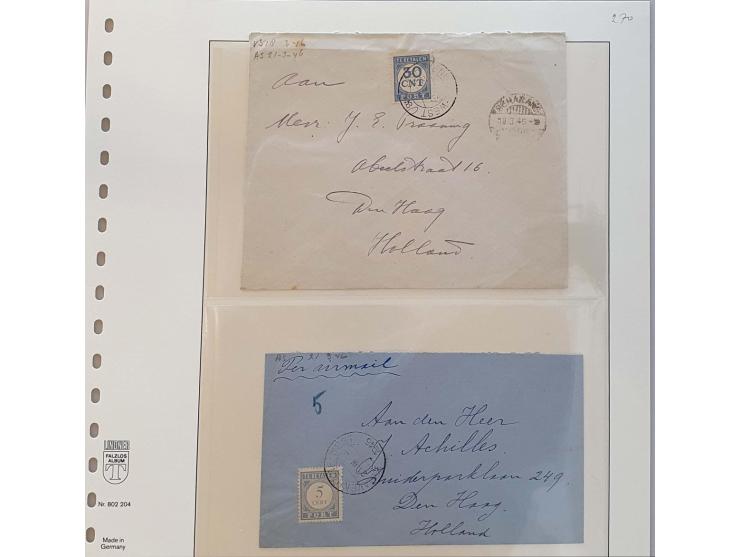 270
AS 21-3-46
Aan
TE BETALEN
30
CNT
PORT
Mevr. J. E.
Abeelstraat 16.
Den Haag
Holland.
Per airmail
5
Aan den Heer
J. Achilles.
Zuiderparklaan 249.
Den Haag.
Holland
TE BETALEN
5
CENT
PORT
LINDNER
FALZLOS
ALBUM
T
Nr. 802 204
Made in
Germany